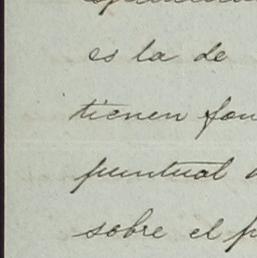 es la de
tienen
puntual
sobre el